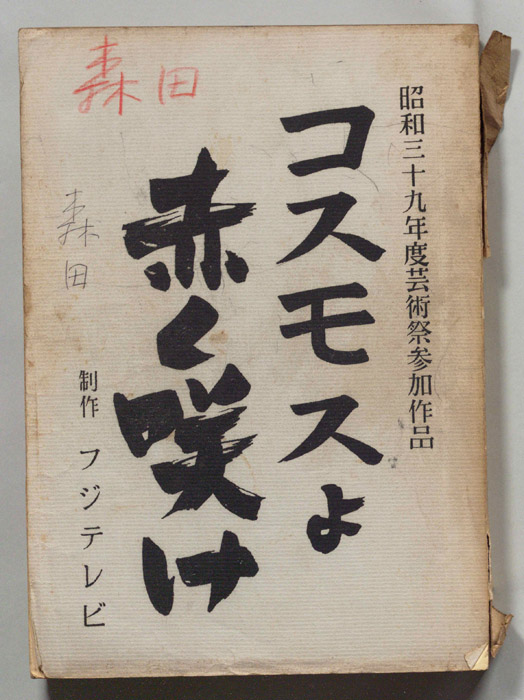 森田
昭和三十九年度芸術祭参加作品
コスモスよ
赤く咲け
森田
制作 フジテレビ